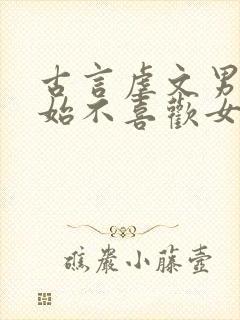 古言虐文男
始不喜歡女
礁巖小藤壺